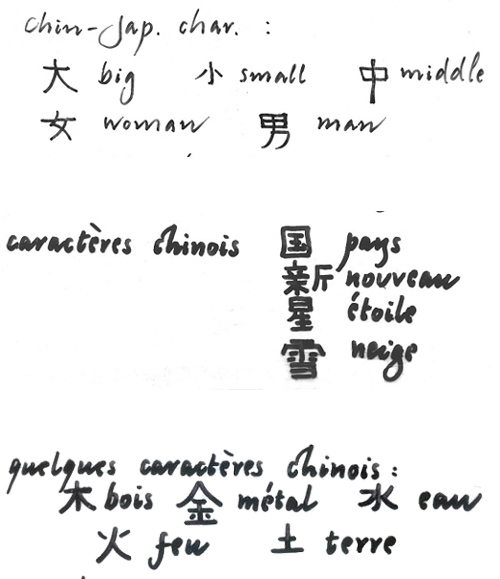 chin-Jap. char. :
大 big 小 small 中 middle
女 woman 男 man
caractères chinois 国 pays
新 nouveau
星 étoile
雪 neige
quelques caractères chinois :
木 bois 金 métal 水 eau
火 feu 土 terre